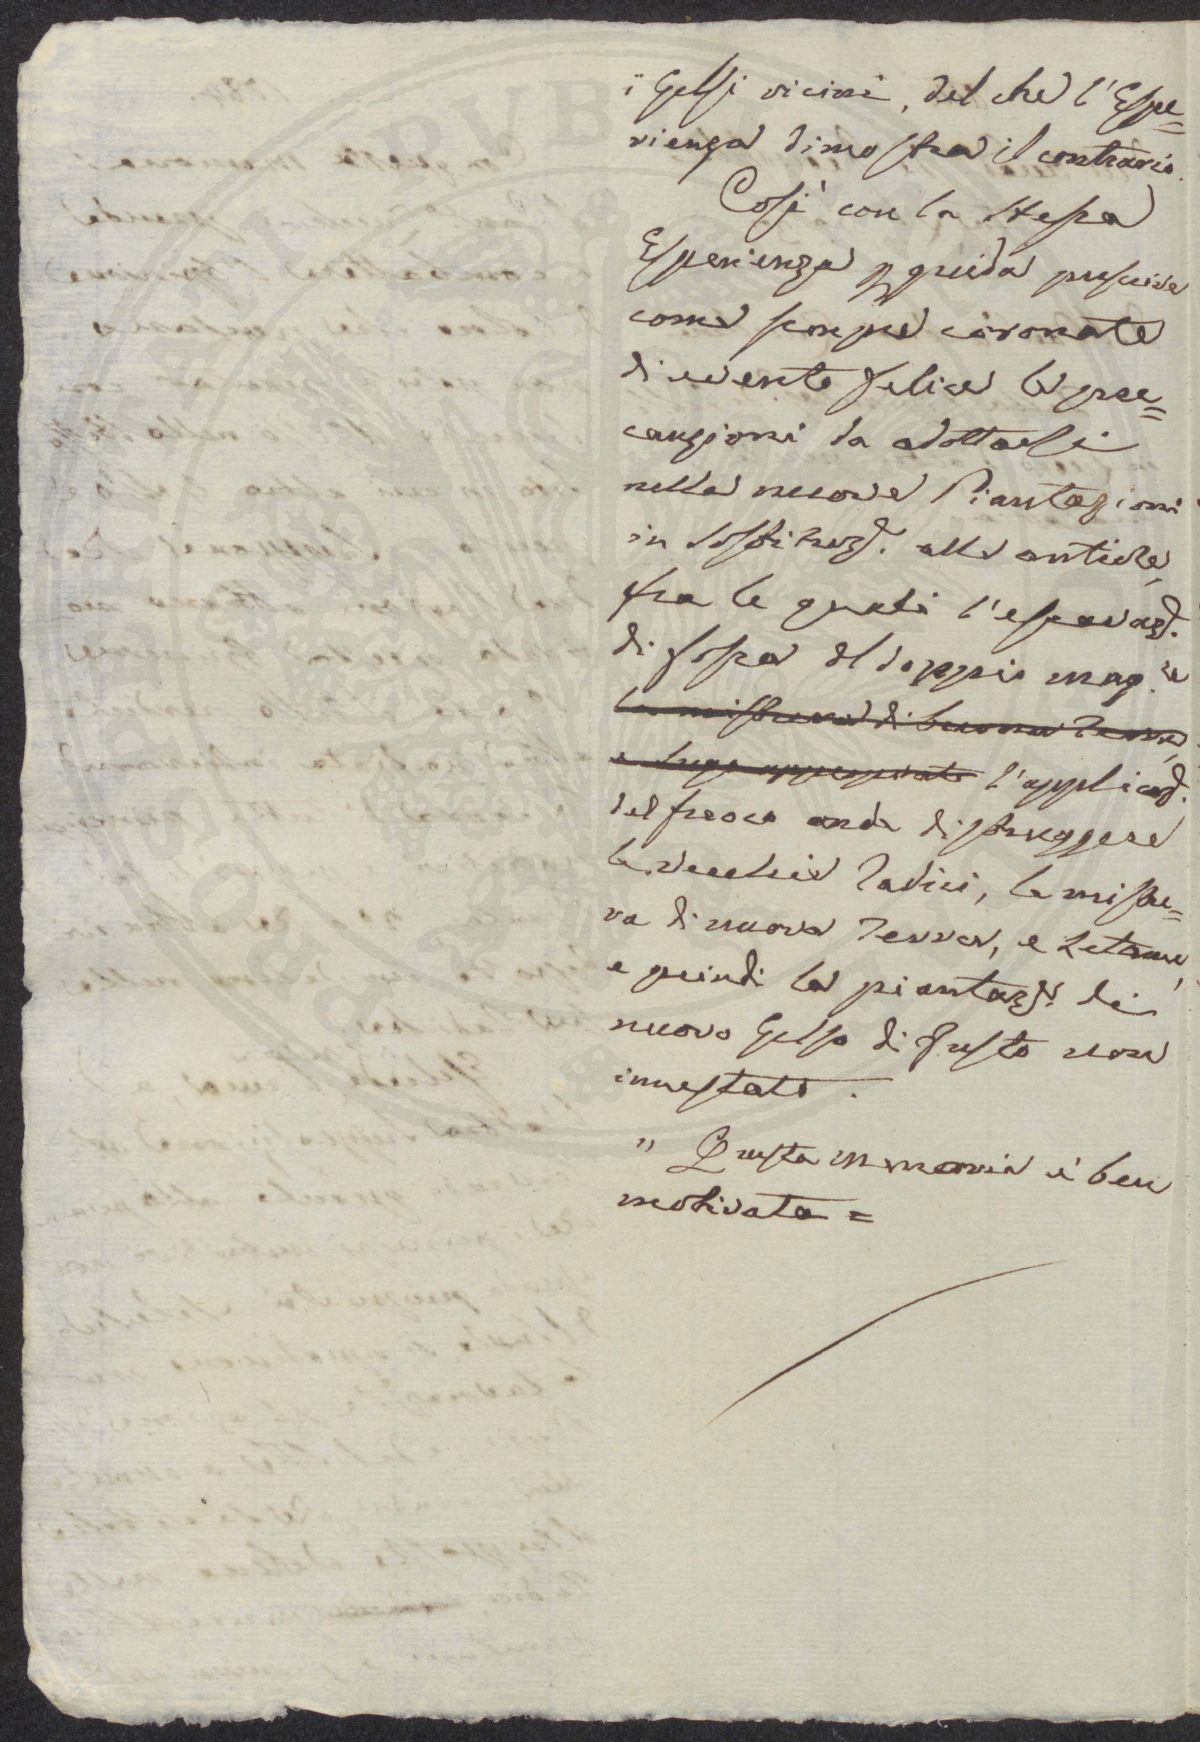 i Gelsi vicini, del che l'Espe=
rienza dimostra il contrario.
Così con la stessa
Esperienza p guida prescrive
come sempre coronate
di evento felice le pre=
cauzioni da adottarsi
nelle nuove Piantagioni
in sostituz.e alle antiche,
fra le quali l'escavaz.e
di fossa del doppio mag.re
la mistura di buona Terra,
e l'applicaz.e
del fuoco onde distruggere
le vecchie Radici, la mistu=
ra di nuova Terra, e Letame,
e quindi la piantaz.e di
nuovo Gelso di fusto non
innestato.
" Questa memoria è ben
motivata =